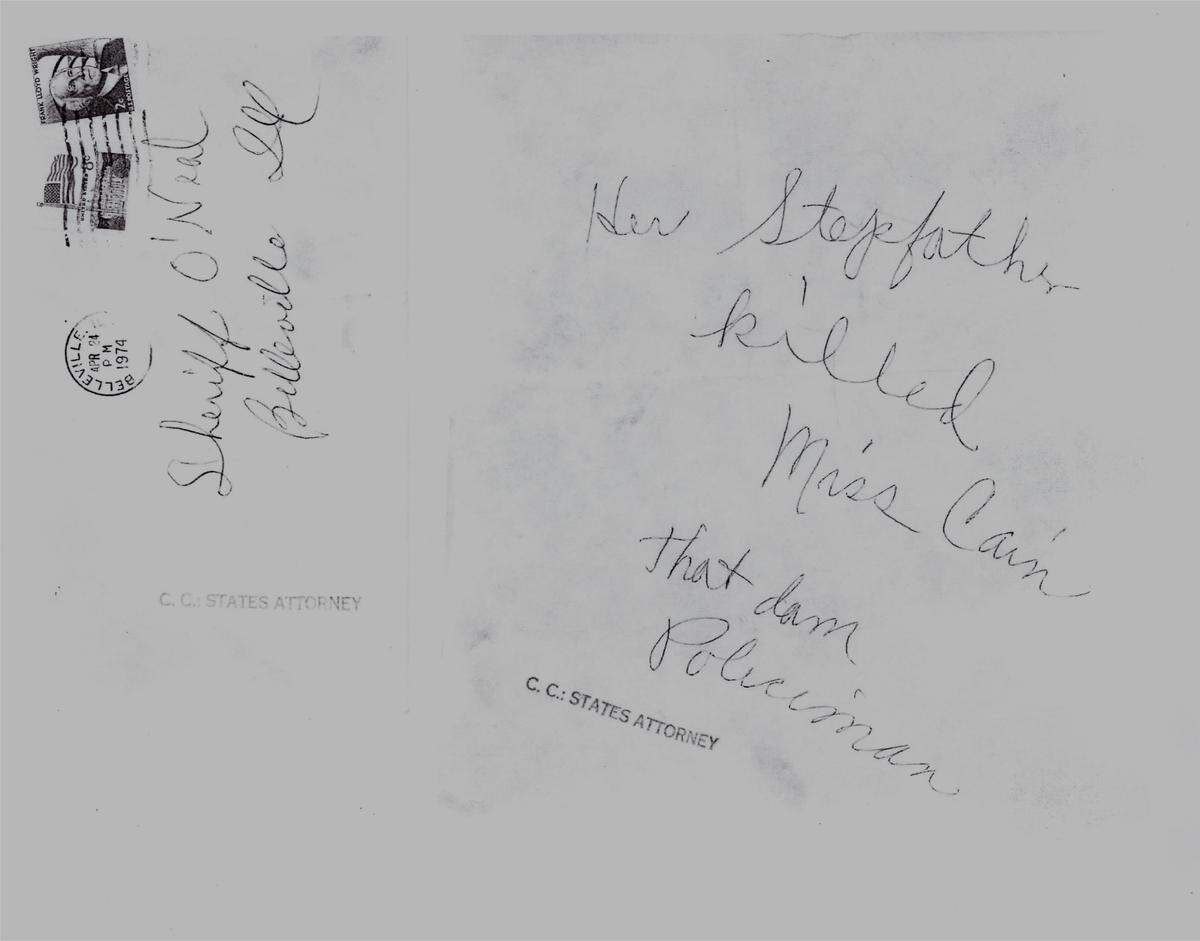 FRANK LLOYD WRIGHT
2c
U.S. POSTAGE
8c
BELLEVILLE
APR 24
PM
1974
Sheriff O'Neal
Belleville Ill
C. C.: STATES ATTORNEY
Her Stepfather
killed
Miss Cain
That dam
Policiman
C. C.: STATES ATTORNEY